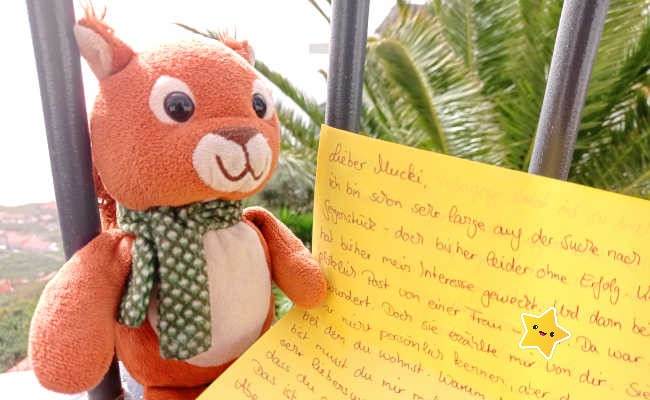 Lieber Mucki,
ich bin schon sehr lange auf der Suche nach
Gegenstück - doch bisher leider ohne Erfolg. U
hat bisher mein Interesse geweckt. Und dann be
plötzlich Post von einer Frau Da war
wundert. Doch sie erzählte mir von dir. Sie
nicht persönlich kennen, aber d
bei dem du wohnst. Warum
bst musst du mir
sehr liebensw
dass du
Das ist